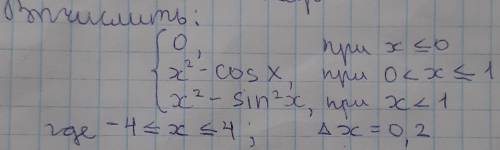 Вычислить:
0, при x ≤ 0
x² - cos x, при 0 < x ≤ 1
x² - sin² x, при x < 1
где -4 ≤ x ≤ 4; Δx = 0,2